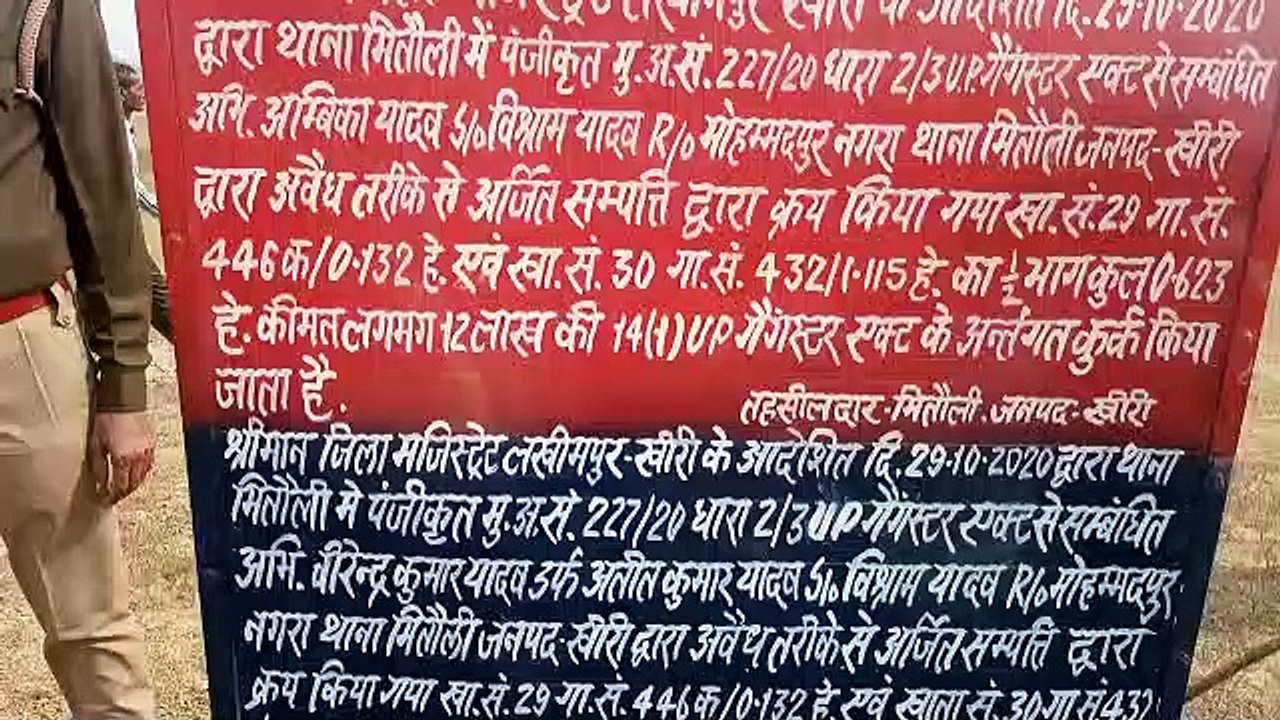 लखीमपुर खीरी के आदेशित दि. 29-10-2020
द्वारा थाना मितौली में पंजीकृत मु.अ.सं. 227/20 धारा 2/3 U.P. गैंगस्टर एक्ट से सम्बंधित
अभि. अम्बिका यादव S/o विश्राम यादव R/o मोहम्मदपुर नगरा थाना मितौली जनपद-खीरी
द्वारा अवैध तरीके से अर्जित सम्पत्ति द्वारा क्रय किया गया खा.सं. 29 गा.सं.
446क/0.132 हे. एवं खा.सं. 30 गा.सं. 432/1.115 हे. का 1/2 भाग कुल 0.623
हे. कीमत लगभग 12 लाख की 14(1) UP गैंगस्टर एक्ट के अर्न्तगत कुर्क किया
जाता है.
तहसीलदार-मितौली जनपद-खीरी
श्रीमान जिला मजिस्ट्रेट लखीमपुर-खीरी के आदेशित दि. 29-10-2020 द्वारा थाना
मितौली मे पंजीकृत मु.अ.सं. 227/20 धारा 2/3 UP गैंगस्टर एक्ट से सम्बंधित
अभि. वीरेन्द्र कुमार यादव उर्फ अतीत कुमार यादव S/o विश्राम यादव R/o मोहम्मदपुर-
नगरा थाना मितौली जनपद-खीरी द्वारा अवैध तरीके से अर्जित सम्पत्ति द्वारा
क्रय किया गया खा.सं. 29 गा.सं. 446क/0.132 हे. एवं खाता सं. 30 गा सं 432/